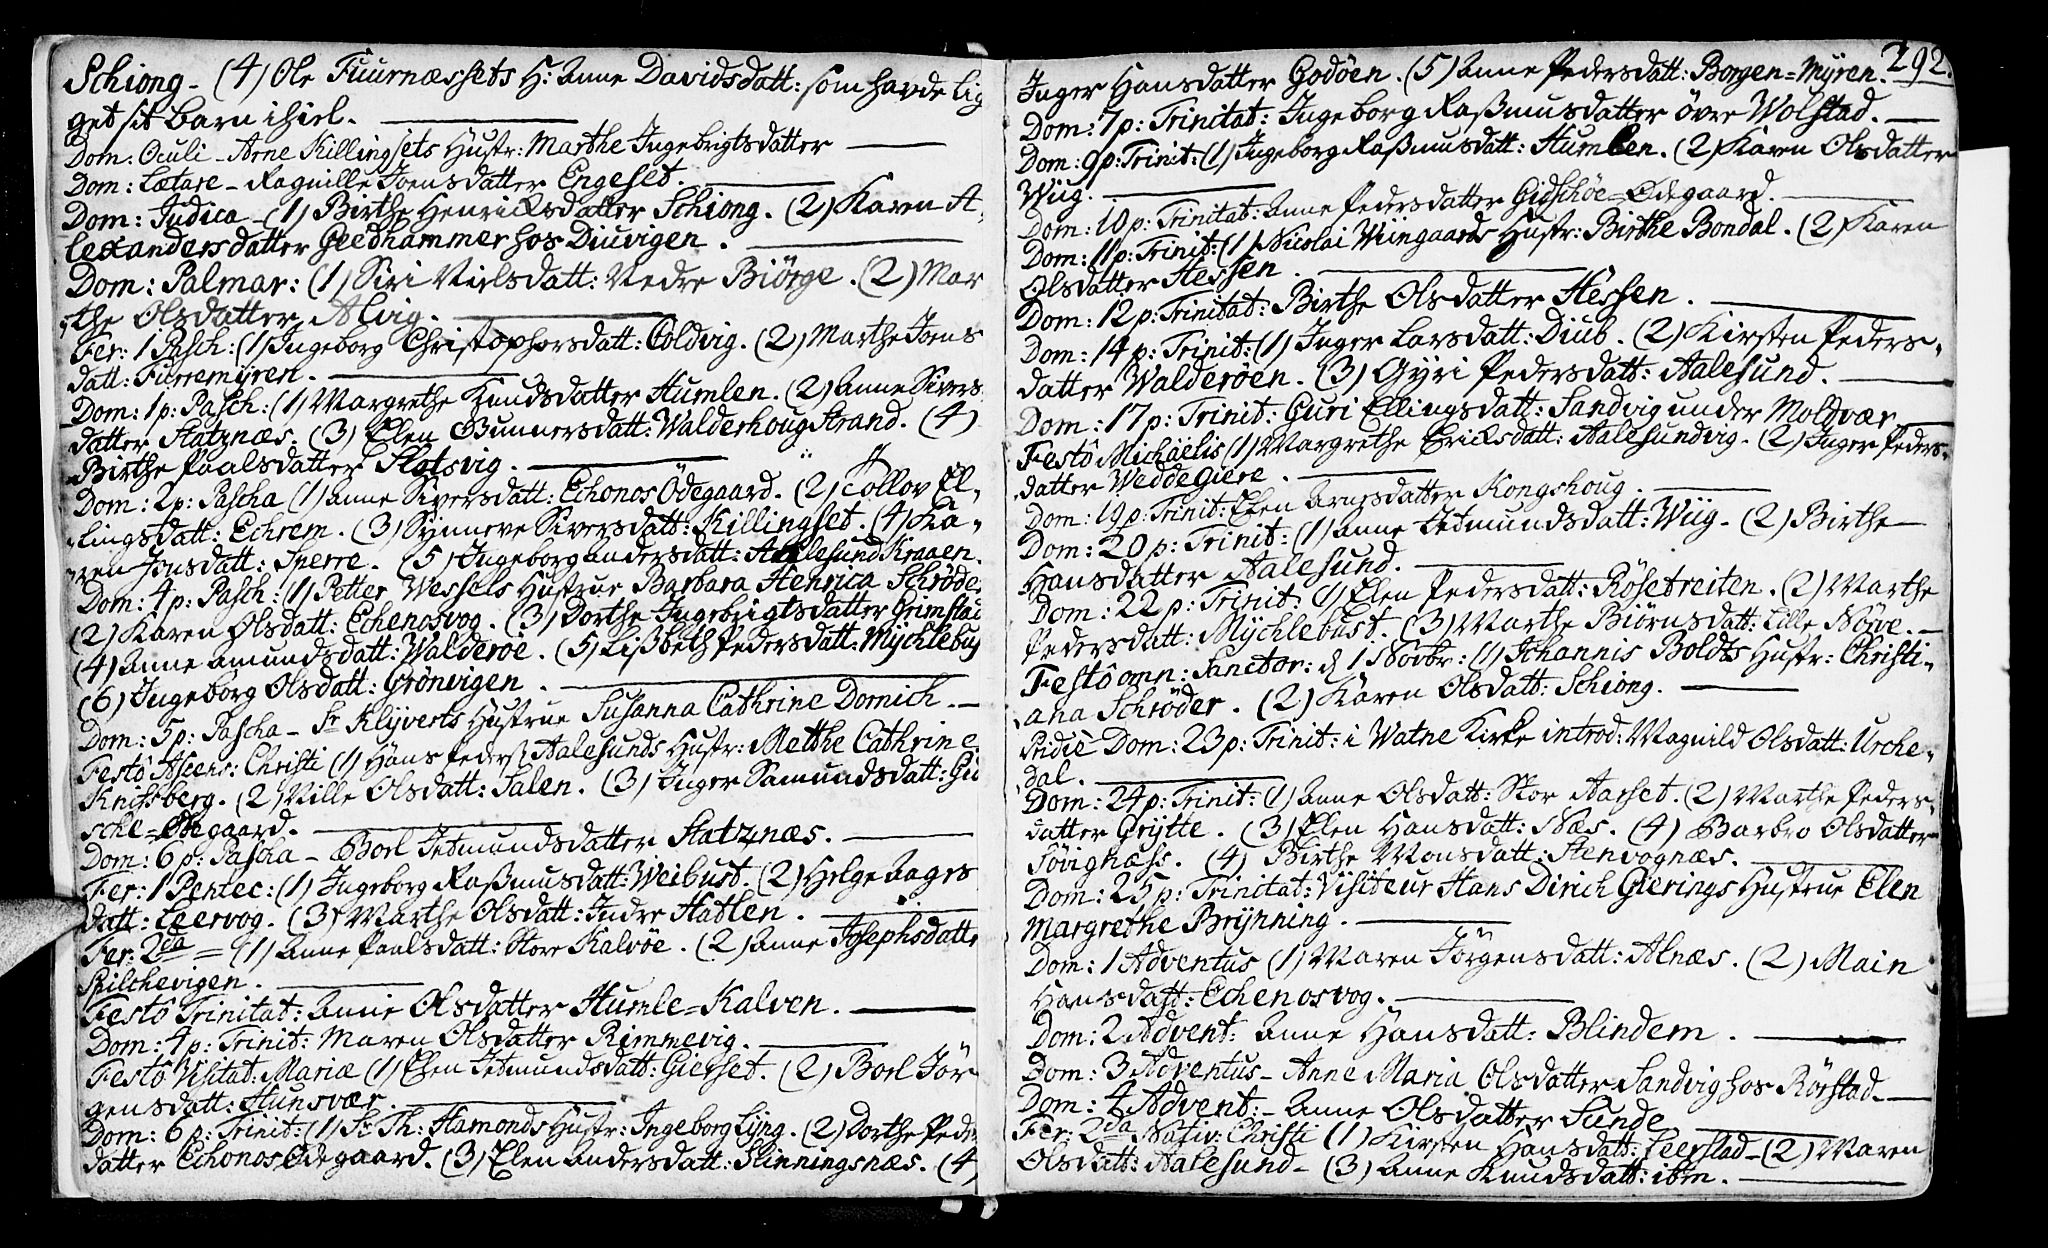 Schiong - (4) Ole Fuurnæssets H: Anne Davidsdatt: som havde lig
get sit barn ihiel.
Dom: Oculi - Arne Killingsets Hustr: Marthe Ingebrigtsdatter
Dom: Lætare - Ragnille Joensdatter Engeset.
Dom: Judica - (1) Birthe Henricksdatter Schiong. (2) Karen A,
lexandersdatter Geedhammer hos Diuvigen.
Dom: Palmar: (1) Siri Nielsdatt: Nedre Biörge. (2) Mar
the Olsdatter Alvig.
Fer: 1 Pasch: (1) Ingeborg Christophorsdatt: Coldvig. (2) Marthe Joens
datt: Furremÿren.
Dom: 1 p: Pasch: (1) Margrethe Knudsdatter Humlen. (2) Anne Sivers
datter Statznæs. (3) Elen Gunnersdatt: Walderhoug Strand. (4)
Birthe Paalsdatter Slotsvig.
Dom: 2 p: Pascha (1) Anne Siversdatt: Echonos Ödegaard. (2) Collov El,
lingsdatt: Echrem. (3) Sÿnneve Siversdatt: Killingset. (4) Ka,
ren Jonsdatt: Sperre. (5) Ingeborg Andersdatt: Aalesund Kraaen.
Dom: 4 p: Pasch: (1) Petter Wessels Hustrue Barbara Henrica Schröde
(2) Karen Olsdatt: Echenosvog. (3) Dorthe Ingebrigtsdatter Grimstad
(4) Anne Amundsdatt: Walderöe. (5) Lißbeth Pedersdatt: Mÿchlebus
(6) Ingeborg Olsdatt: Grönvigen.
Dom: 5 p: Pascha - Sr Klÿverts Hustrue Susanna Cathrine Domich.
Festô Ascens: Christi (1) Hans Pederß Aalesunds Hustr: Metthe Cathrine
Knihsberg. (2) Ville Olsdatt: Salen. (3) Inger Samundsdatt: Gid
sche=Ödegaard.
Dom: 6 p: Pascha - Borl Jetmundsdatter Statznæs.
Fer: 1 Pentec: (1) Ingeborg Raßmusdatt: Weibust. (2) Helge Aages
datt: Leervog. (3) Marthe Olsdatt: Indre Hatlen.
Fer: 2da = (1) Anne Paalsdatt: Store Kalvöe. (2) Anne Josephsdatte
Spilchevigen.
Festô Trinitat: Anne Olsdatter Humle=Kalven.
Dom: 4 p: Trinit: Maren Olsdatter Rimmevig.
Festô Visitat: Mariæ (1) Elen Jetmundsdatt: Gierset. (2) Borl Jör
gensdatt: Hunsvær.
Dom: 6 p: Trinit: (1) Sr Th: Hamonds Hustr: Ingeborg Lÿng. (2) Dorthe Peder
datter Echonos Ödegaard. (3) Elen Andersdatt: Slinningsnæs. (4)
292.
Inger Hansdatter Godöen. (5) Anne Pedersdatt: Borgen=Mÿren.
Dom: 7 p: Trinitat: Ingeborg Raßmusdatter övre Wolstad.
Dom: 9 p: Trinit: (1) Ingeborg Raßmusdatt: Humlen. (2) Karen Olsdatter
Wiig.
Dom: 10 p: Trinitat: Anne Pedersdatter Gidschöe=Ödegaard.
Dom: 11 p: Trinit: (1) Nicolai Wiingaards Hustr: Birthe Bondal. (2) Karen
Olsdatter Hessen.
Dom: 12 p: Trinitat: Birthe Olsdatter Hessen.
Dom: 14 p: Trinit: (1) Inger Larsdatt: Diub. (2) Kirsten Peders,
datter Walderöen. (3) Gÿri Pedersdatt: Aalesund.
Dom: 17 p: Trinit: Guri Ellingsdatt: Sandvig under Moldvær
Festô Michäelis (1) Margrethe Ericksdatt: Aalesundvig. (2) Inger Peders,
datter Wedde Giere.
Dom: 19 p: Trinit: Elen Arnesdatter Kongshoug.
Dom: 20 p: Trinit: (1) Anne Jetmundsdatt: Wiig - (2) Birthe
Hansdatter Aalesund.
Dom: 22 p: Trinit: (1) Elen Pedersdatt: Rösetreiten. (2) Marthe
Pedersdatt: Mÿchlebust. (3) Marthe Biörnsdatt: Lille Nörve.
Festô omn: Sanctor: d 1 Novbr: (1) Johannis Boldts Hustr: Christi,
ana Schröder. (2) Karen Olsdatt: Schiong.
Pridiè Dom: 23 p: Trinit: i Watne Kirke introd: Magnild Olsdatt: Urche,
dal.
Dom: 24 p: Trinit: (1) Anne Olsdatt: Stor Aarset. (2) Marthe Peders,
datter Grÿtte. (3) Elen Hansdatt: Næs. (4) Barbro Olsdatter
Sövignæss. (4) Birthe Monsdatt: Stenvognæs.
Dom: 25 p: Trinitat: Visiteur Hans Dirich Gierings Hustrue Elen
Margrethe Brÿnning.
Dom: 1 Adventus (1) Maren Jörgensdatt: Alnæs. (2) Marin
Hansdatt: Echenosvog.
Dom: 2 Advent: Anne Hansdatt: Blindem.
Dom: 3 Adventus - Anne Maria Olsdatter Sandvig hos Rörstad.
Dom: 4 Advent: - Anne Olsdatter Sunde
Fer: 2da Nativ: Christi (1) Kirsten Hansdatt: Leerstad - (2) Maren
Olsdatt: Aalesund - (3) Anne Knudsdatt: ibm.